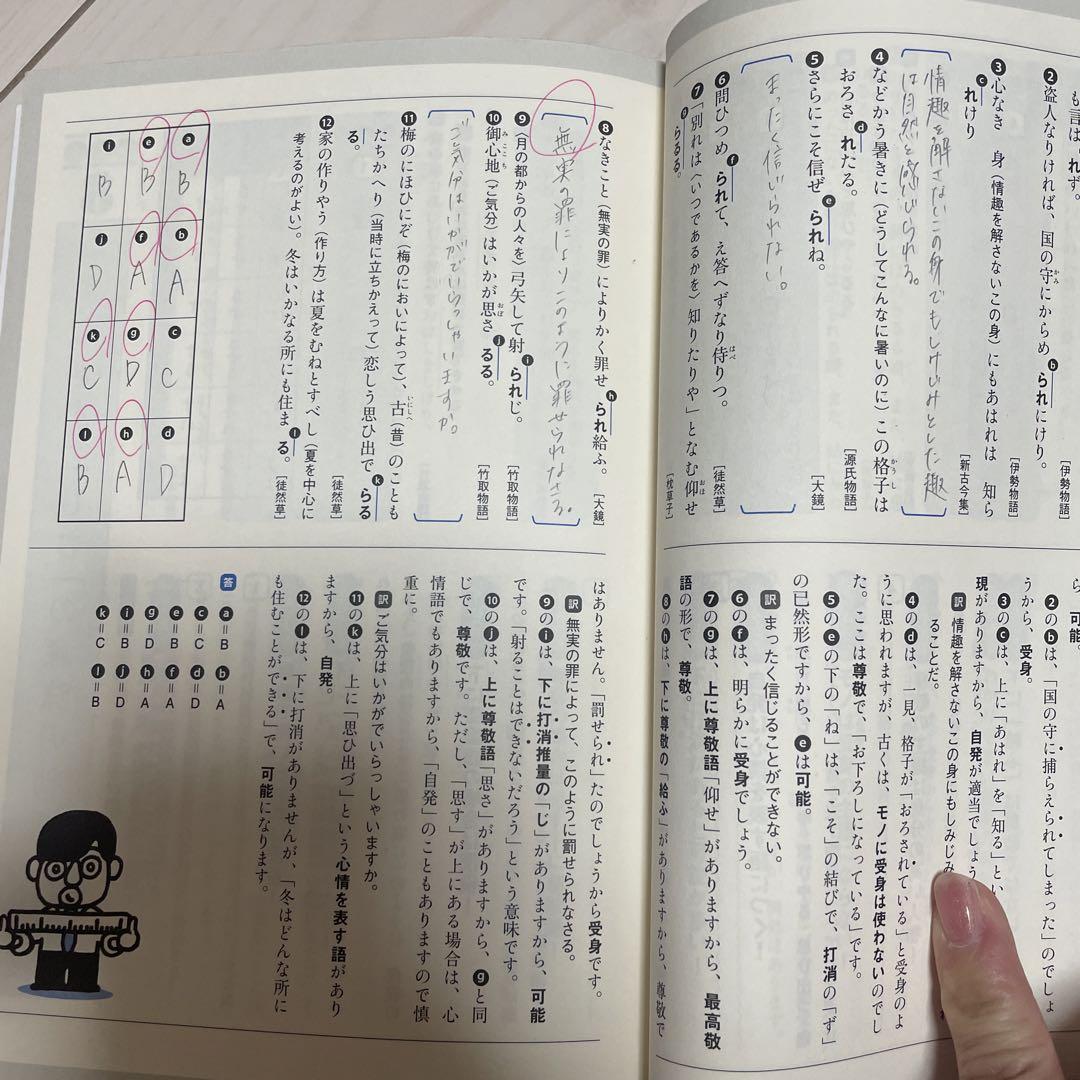 も言は、れず。
❷盗人なりければ、国の守にからめⓑられにけり。
[伊勢物語]
❸心なき 身(情趣を解さないこの身)にもあはれは 知ら
ⓒれけり
[新古今集]
情趣を解さないこの身でもしみじみとした趣
は自然と感じられる。
❹などかう暑きに(どうしてこんなに暑いのに)この格子は
おろさⓓれたる。
[源氏物語]
❺さらにこそ信ぜⓔられね。
[大鏡]
まったく信じられない。
❻問ひつめⓕられて、え答へずなり侍りつ。
[徒然草]
❼「別れは(いつであるかを)知りたりや」となむ仰せ
ⓖらるる。
[枕草子]
❽なきこと(無実の罪)によりかく罪せⓗられ給ふ。
[大鏡]
無実の罪によりこのように罪せられなさる。
❾(月の都からの人々を)弓矢して射ⓘられじ。
[竹取物語]
❿御心地(ご気分)はいかが思さⓙるる。
[竹取物語]
ご気分はいかがでいらっしゃいますか。
⓫梅のにほひにぞ(梅のにおいによって)、古(昔)のことも
たちかへり(当時に立ちかえって)恋しう思ひ出でⓚらる
る。
[徒然草]
⓬家の作りやう(作り方)は夏をむねとすべし(夏を中心に
考えるのがよい)。冬はいかなる所にも住まⓛる。
[徒然草]
ⓐ B
ⓑ A
ⓒ C
ⓓ D
ⓔ B
ⓕ A
ⓖ D
ⓗ A
ⓘ B
ⓙ D
ⓚ C
ⓛ B
ら、可能。
❷のⓑは、「国の守に捕らえられてしまった」のでしょ
うから、受身。
❸のⓒは、上に「あはれ」を「知る」とい
現がありますから、自発が適当でしょう
訳 情趣を解さないこの身にもしみじみ
ることだ。
❹のⓓは、一見、格子が「おろされている」と受身のよ
うに思われますが、古くは、モノに受身は使わないのでし
た。ここは尊敬で、「お下ろしになっている」です。
❺のⓔの下の「ね」は、「こそ」の結びで、打消の「ず」
の已然形ですから、ⓔは可能。
訳 まったく信じることができない。
❻のⓕは、明らかに受身でしょう。
❼のⓖは、上に尊敬語「仰せ」がありますから、最高敬
語の形で、尊敬。
❽のⓗは、下に尊敬の「給ふ」がありますから、尊敬で
はありません。「罰せられ」たのでしょうから受身です。
訳 無実の罪によって、このように罰せられなさる。
❾のⓘは、下に打消推量の「じ」がありますから、可能
です。「射ることはできないだろう」という意味です。
❿のⓙは、上に尊敬語「思さ」がありますから、ⓖと同
じで、尊敬です。ただし、「思す」が上にある場合は、心
情語でもありますから、「自発」のこともありますので慎
重に。
訳 ご気分はいかがでいらっしゃいますか。
⓫のⓚは、上に「思ひ出づ」という心情を表す語があり
ますから、自発。
⓬のⓛは、下に打消がありませんが、「冬はどんな所に
も住むことができる」で、可能になります。
答
ⓐ=B ⓑ=A
ⓒ=C ⓓ=D
ⓔ=B ⓕ=A
ⓖ=D ⓗ=A
ⓘ=B ⓙ=D
ⓚ=C ⓛ=B